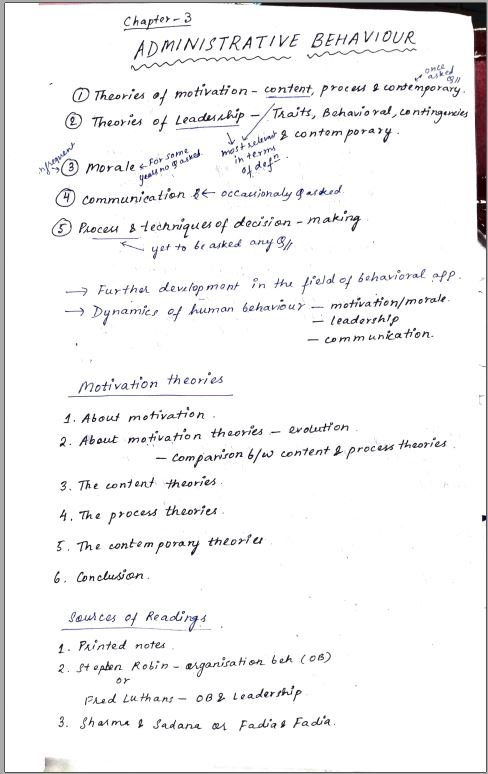 Chapter-3
ADMINISTRATIVE BEHAVIOUR
① Theories of motivation - content, process & contemporary.
once asked Q//
② Theories of Leadership - Traits, Behavioral, contingencies
& contemporary.
most relevant in terms of defn.
③ Morale ← For some years no Q asked.
④ Communication & ← occassionaly Q asked.
⑤ Process & techniques of decision - making
yet to be asked any Q//
→ Further development in the field of behavioral app.
→ Dynamics of human behaviour - motivation/morale.
- leadership
- communication.
Motivation theories
1. About motivation.
2. About motivation theories - evolution.
- comparison b/w content & process theories.
3. The content theories.
4. The process theories.
5. The contemporary theories
6. Conclusion.
Sources of Readings
1. Printed notes.
2. Stephen Robin - organisation beh (OB)
or
Fred Luthans - OB & Leadership.
3. Sharma & Sadana or Fadia & Fadia.